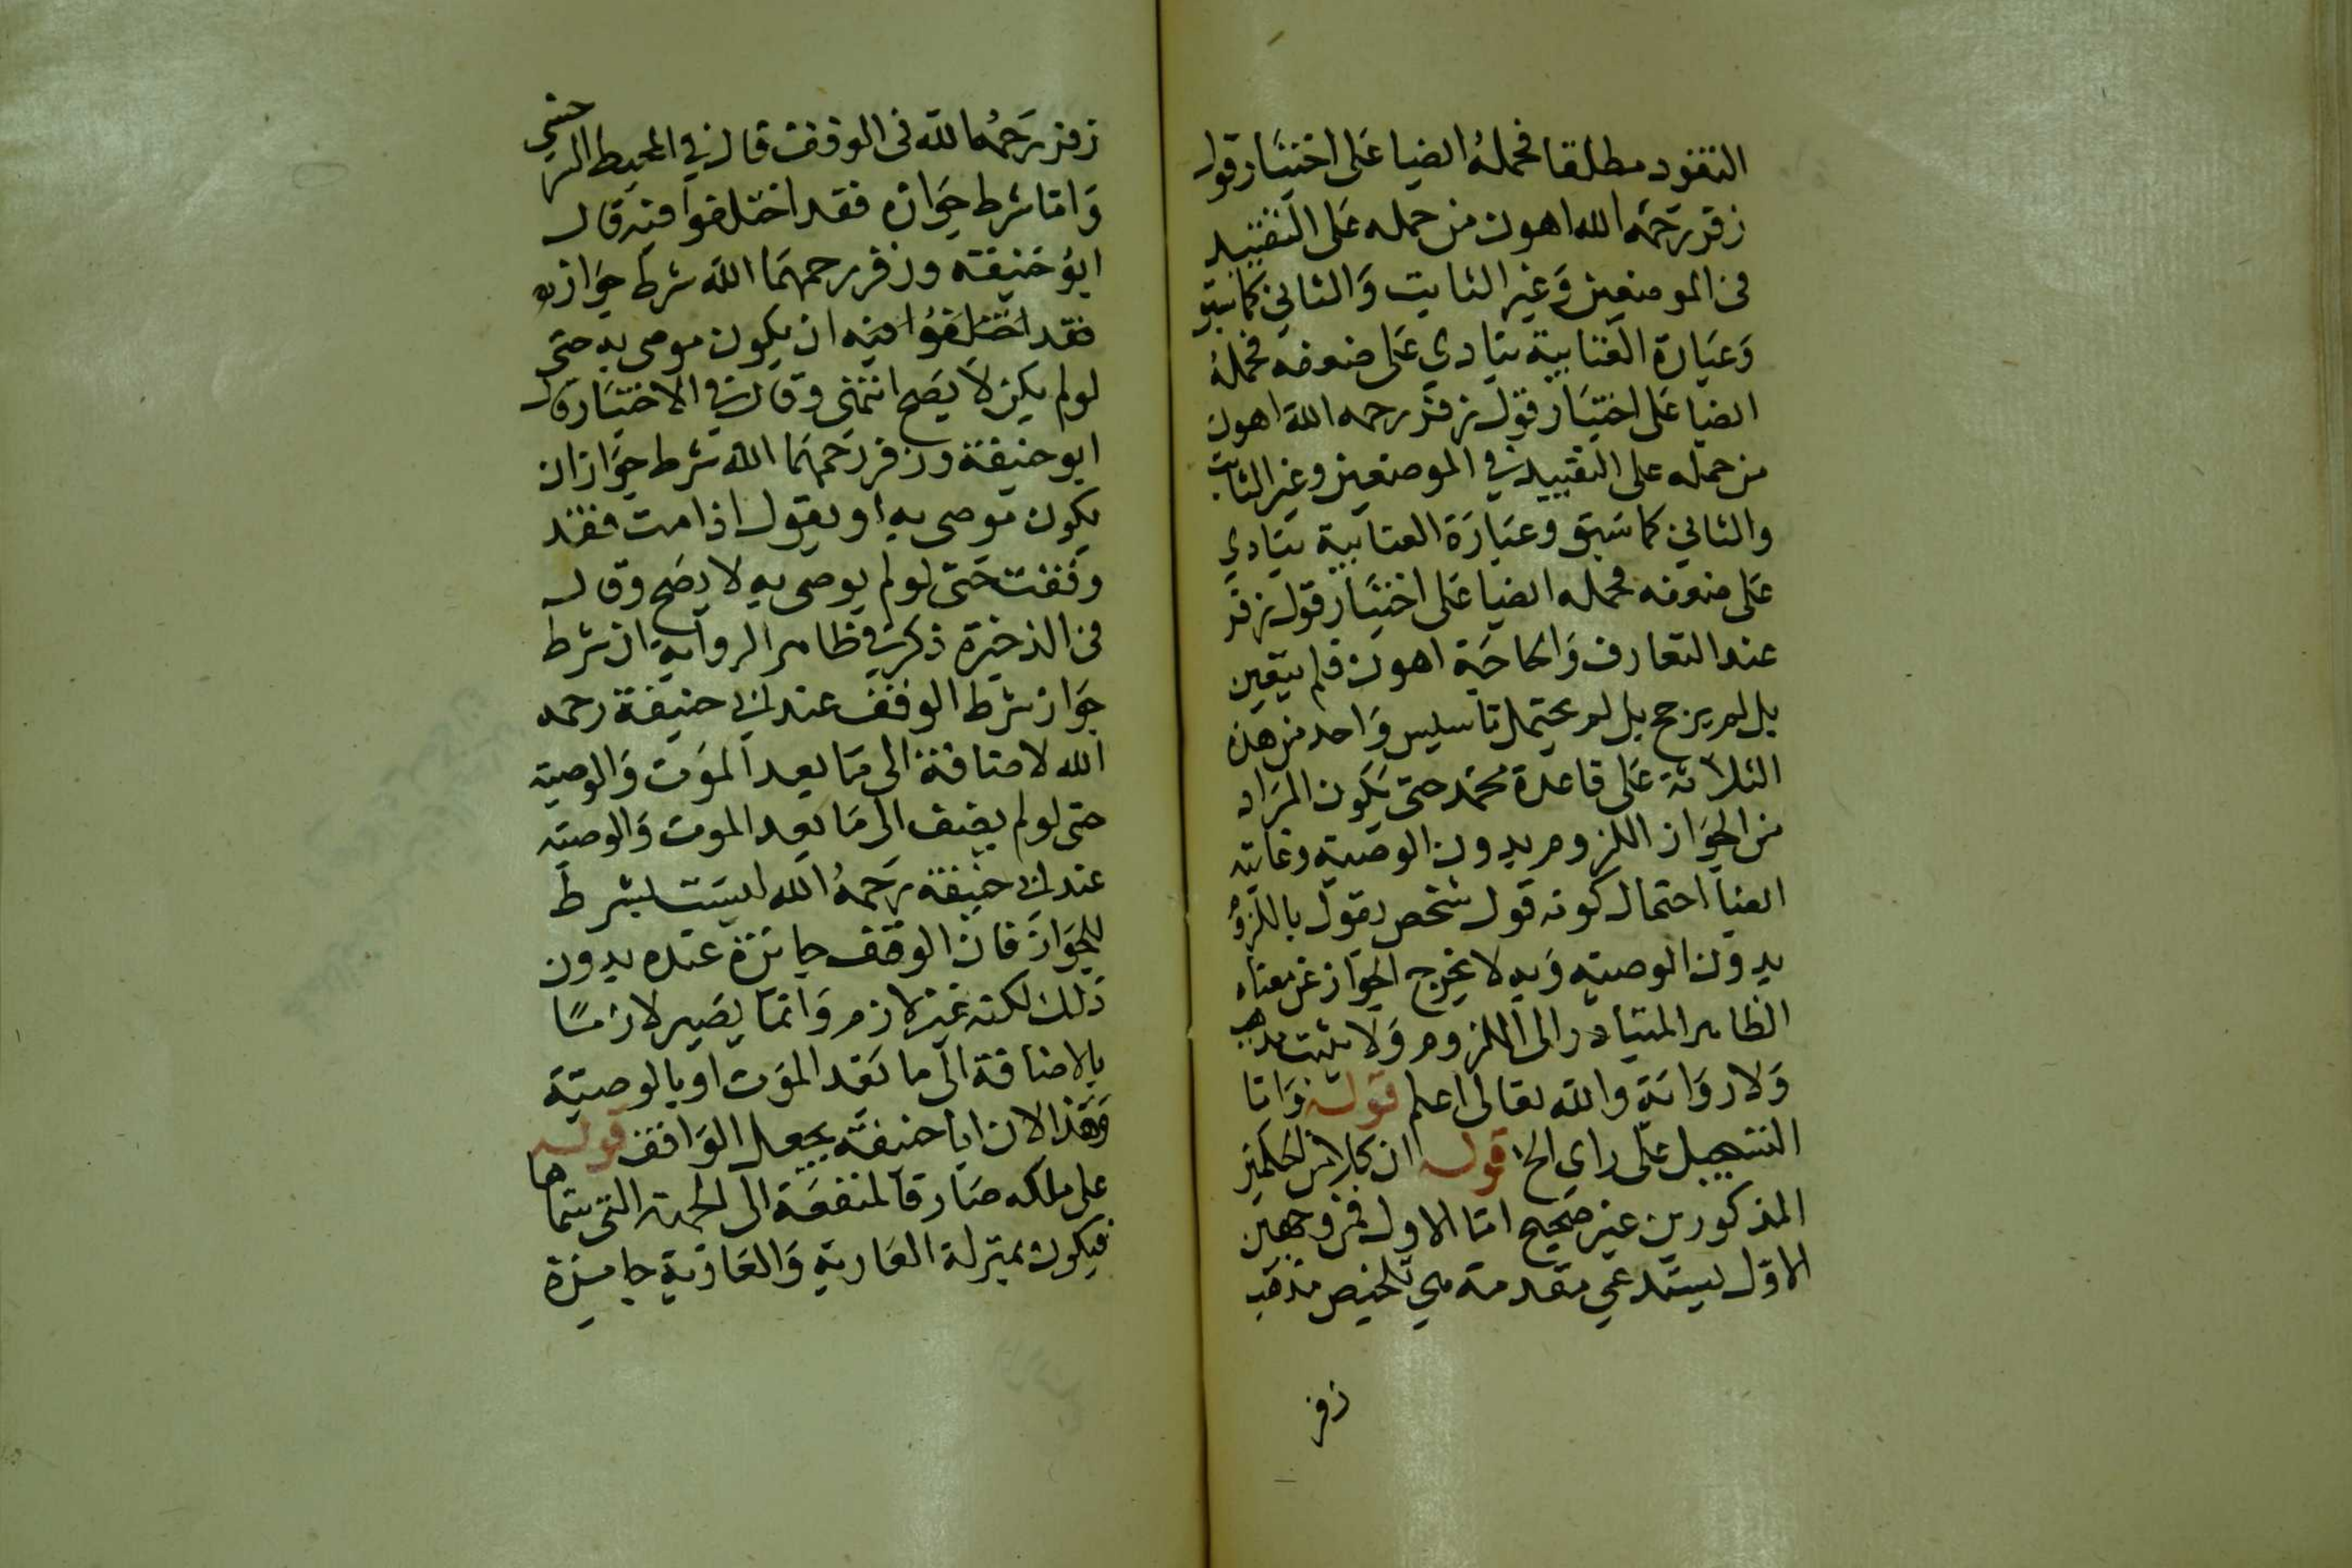 النقود مطلقا فحمله ايضا على اختيار قول
زفر رحمه الله اهون من حمله على التقييد
فى الموضعين وغير الثابت والثاني كما سبق
وعبارة العتابية ينادي على ضعفه فحمله
ايضا على اختيار قول زفر رحمه الله اهون
من حمله على التقييد في الموضعين وغير الثابت
والثاني كما سبق وعبارة العتابية ينادي
على ضعفه فحمله ايضا على اختيار قول زفر
عند التعارف والحاجة اهون فلم يتعين
بل لم يرجح بل لم يحتمل تاسيس واحد من هذه
الثلاثة على قاعدة محمد حتى يكون المراد
من الجواز اللزوم بدون الوصية وغايته
ايضا احتمال كونه قول شخص يقول باللزوم
بدون الوصية وبه لا يخرج الجواز عن معناه
الظاهر المتبادر الى اللزوم ولا يثبت مذهب
ولا رواية والله تعالى اعلم قوله واما
التسجيل على راي الخ قوله ان كلا من الحكمين
المذكورين غير صحيح اما الاول فمن وجهين
الاول يستدعي مقدمة هي تلخيص مذهب
زفر
زفر رحمه الله فى الوقف قال في المحيط السرخسي
واما شرط جوازه فقد اختلفوا فيه قال
ابو حنيفة وزفر رحمهما الله شرط جوازه
فقد اختلفوا فيه ان يكون موصى به حتى
لو لم يكن لا يصح انتهى وقال في الاختيار قال
ابو حنيفة وزفر رحمهما الله شرط جوازه ان
يكون موصى به او يقول اذا مت فقد
وقفت حتى لو لم يوصى به لا يصح وقال
فى الذخيرة ذكر في ظاهر الرواية ان شرط
جواز شرط الوقف عند ابي حنيفة رحمه
الله لاضافة الى ما بعد الموت والوصية
حتى لو لم يضف الى ما بعد الموت والوصية
عند ابي حنيفة رحمه الله ليست بشرط
للجواز فان الوقف جائزة عنده بدون
ذلك لكنه غير لازم وانما يصير لازمًا
بالاضافة الى ما بعد الموت او بالوصية
وهذا لان ابا حنيفة يجعل الواقف قوله
على ملكه صارفا لمنفعة الى الجهة التى سماها
فيكون بمنزلة العارية والعارية جايزة